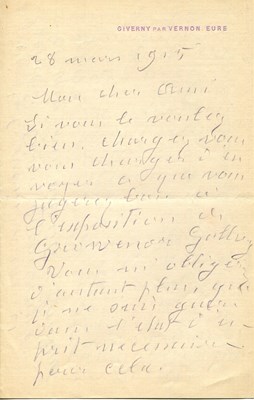 GIVERNY PAR VERNON EURE
28 mars 1915
Mon cher Ami
Si vous le voulez
bien, chargez vous
vous charger d'en
voyer ce que vous
jugerez bon à
l'exposition de
Grosvenor Gallery
Vous m'obligerez
d'autant plus que
je ne suis guère
dans l'état d'es
prit nécessaire
pour cela.